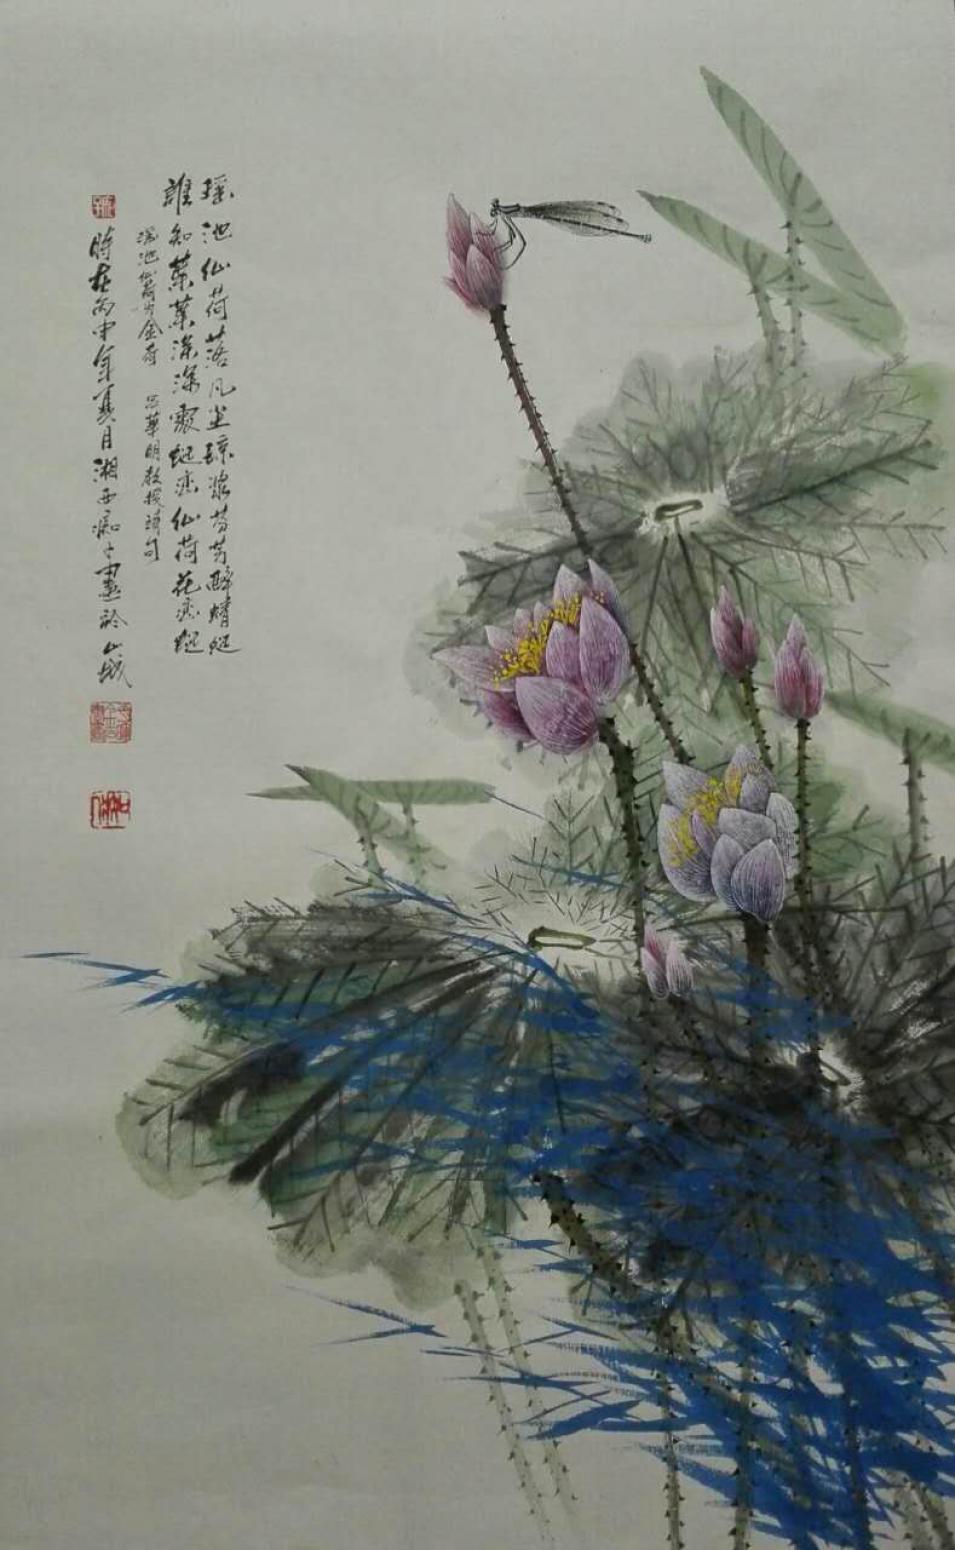 瑶池仙荷落凡尘琼浆芬芳醉蜻蜓
谁知叶叶深深处蜓恋仙荷花恋蜓
瑶池仙荷 金荷 吕华明教授诗句
时在丙申年夏月湘西 画於山城